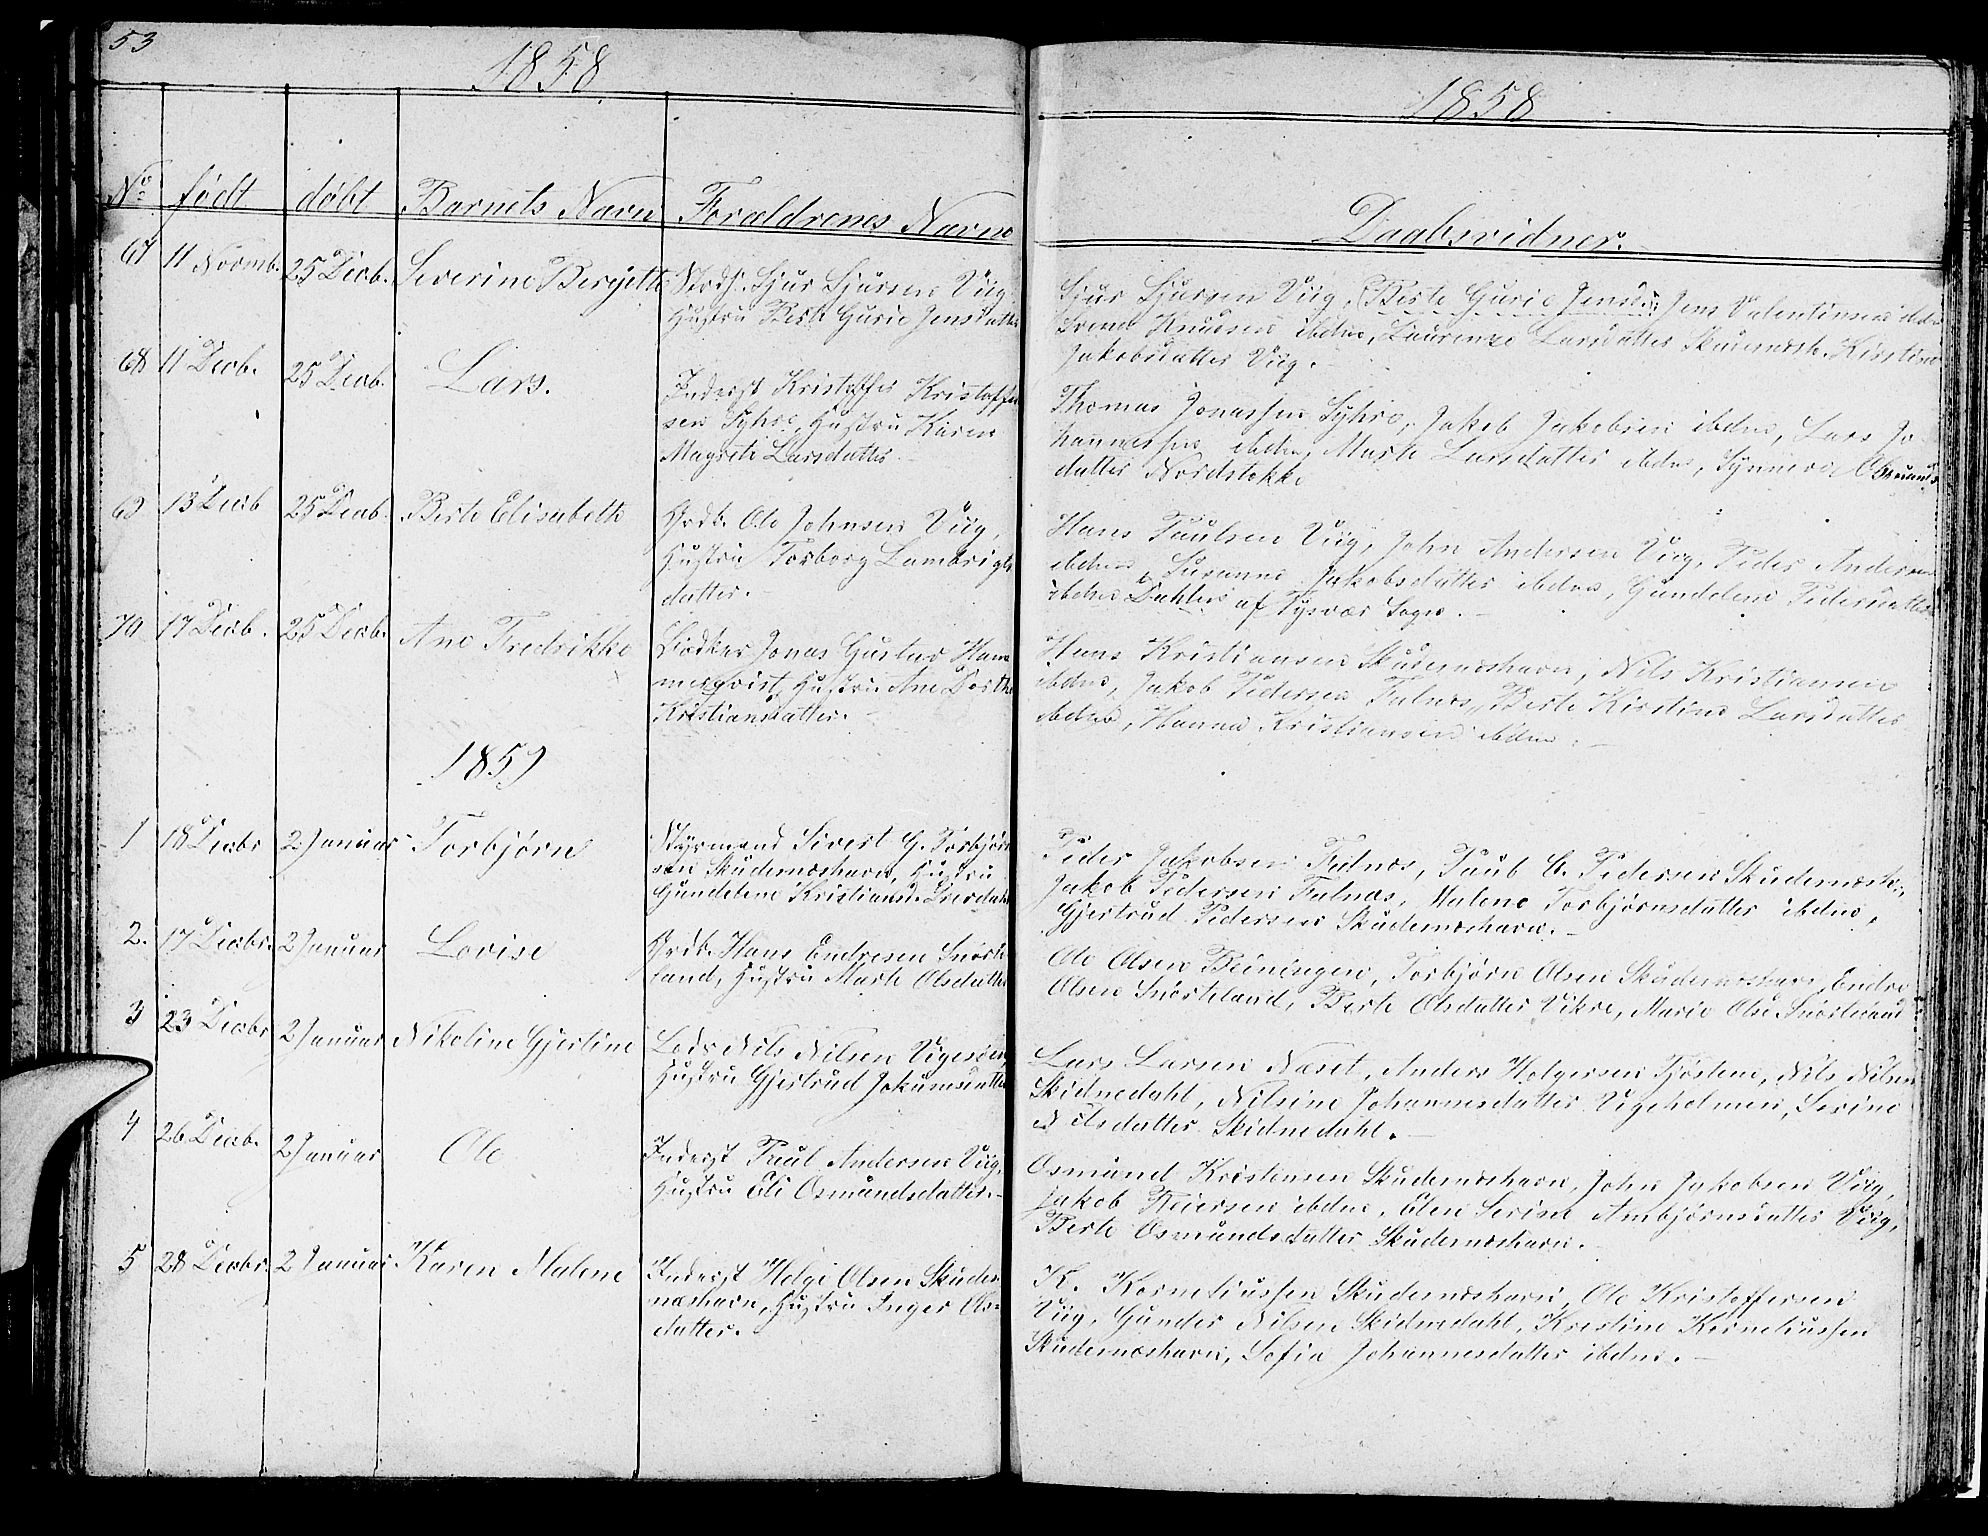 53
1858
No født döbt Barnets Navn Forældrenes Navne
67 11 Novmb. 25 Decb. Severine Bergitte Sjur Sjursen Viig
Hustru Berte Gurie Jensdatter
68 11 Decb. 25 Decb. Lars. Inderst Kristoffer Kristoffer
sen Syhre, Hustru Karen
Magrete Larsdatter
69 13 Decb 25 Decb. Berte Elisabeth Grdb. Ole Johnsen Viig,
Hustru Torborg Lambrigts
datter.
70 17 Decb. 25 Decb. Ane Fredrikke Bødker Jonas Gustav Ham
merqvist, Hustru Ane Dorthe
Kristiansdatter.
1859
1 18 Decbr 2 Januar Torbjørn Styrmand Sivert G. Torbjörn
sen Skudernæshavn, Hustru
Gundelene Kristiansd.
2. 17 Decbr. 2 Januar Lovise Grdb. Hans Endresen Snörte
land, Hustru Marte Olsdatter
3 23 Decbr 2 Januar Nikoline Gjertine Lods Nils Nilsen Vigeholmen,
Hustru Gjertrud Jokumsdatter
4 26 Decb. 2 Januar Ole Inderst Paul Andersen Viig,
Hustru Eli Osmundsdatter.
5 28 Decbr. 2 Januar Karen Malene Inderst Helge Olsen Skuder
næshavn, Hustru Inger Ols
datter.
1858
Daabsvidner.
Sjur Sjursen Viig, Berte Gurie Jensd: Jens Valentinsen ibdn
Svend Knudsen ibdne, Laurenze Larsdatter Skudernæsh. Kirstine
Jakobsdatter Viig.
Thomas Jonassen Syhre, Jakob Jakobsen ibdne, Lars Jo
hannessen ibdne, Marte Larsdatter ibdne, Synneve Osmunds
datter Nordstokke
Hans Paulsen Viig, John Andersen Viig, Peder Andersen
ibdne, Susanne Jakobsdatter ibdne, Gundelene Pedersdatter
ibdne Dahlen af Tysvær Sogn.
Hans Kristiansen Skudernæshavn, Nils Kristiansen
ibdne, Jakob Pedersen Falnæs, Berte Kirstine Larsdatter
ibdne, Hanna Kristiansen ibdne.
Peder Jakobsen Falnæs, Paul C. Pedersen Skudernæsh.,
Jakob Pedersen Falnæs, Malene Torbjørnsdatter ibdne,
Gjertrud Pedersen Skudernæshavn.
Ole Olsen Beiningen, Torbjørn Olsen Skudernæshavn, Endre
Olsen Snørteland, Berte Olsdatter Vikre, Marie Olsd. Snørteland
Lars Larsen Næset, Anders Holgersen Tjøstem, Nils Nilsen
Skidnedahl, Nilsine Johannesdatter Vigeholmen, Serine
Nilsdatter Skidnedahl.
Osmund Kristensen Skudernæshavn, John Jakobsen Viig,
Jakob Reiersen ibdne, Elen Serine Ambjørnsdatter Viig,
Berte Osmundsdatter Skudernæshavn.
K. Korneliussen Skudernæshavn, Ole Kristoffersen
Viig, Gunder Nilsen Skidnedahl, Kristine Korneliussen
Skudernæshavn, Sofia Johannesdatter ibdne.